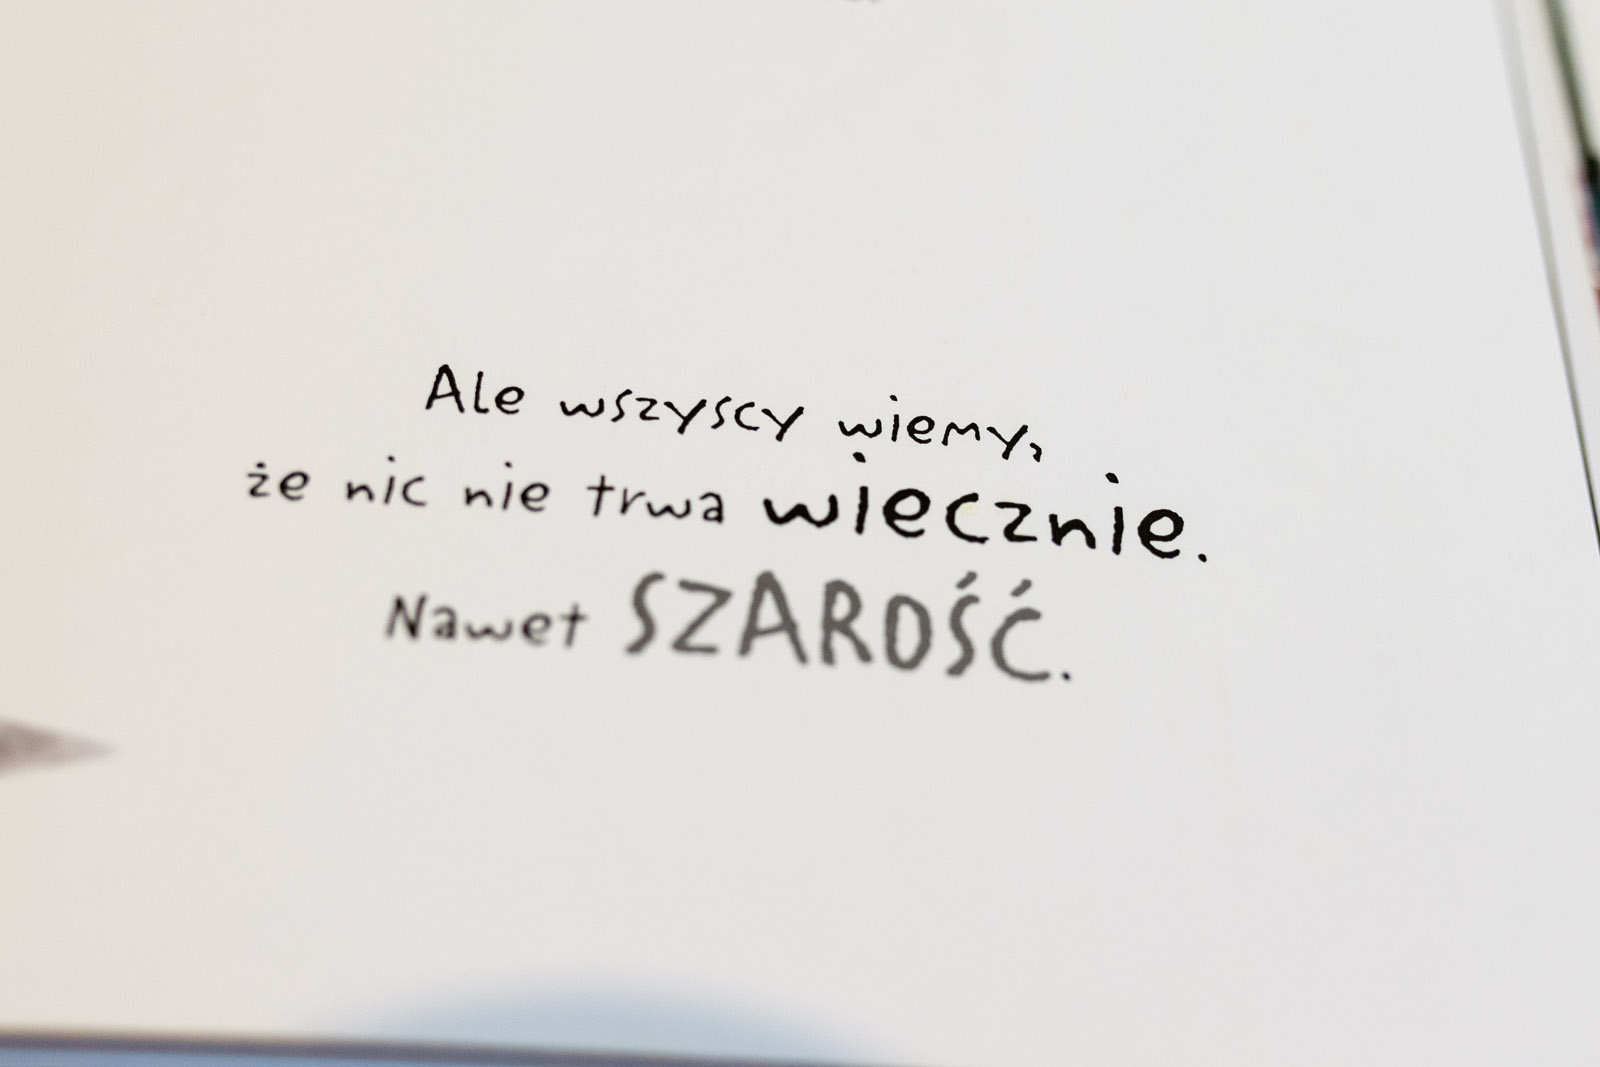 Ale wszyscy wiemy,
że nic nie trwa wiecznie.
Nawet SZAROŚĆ.